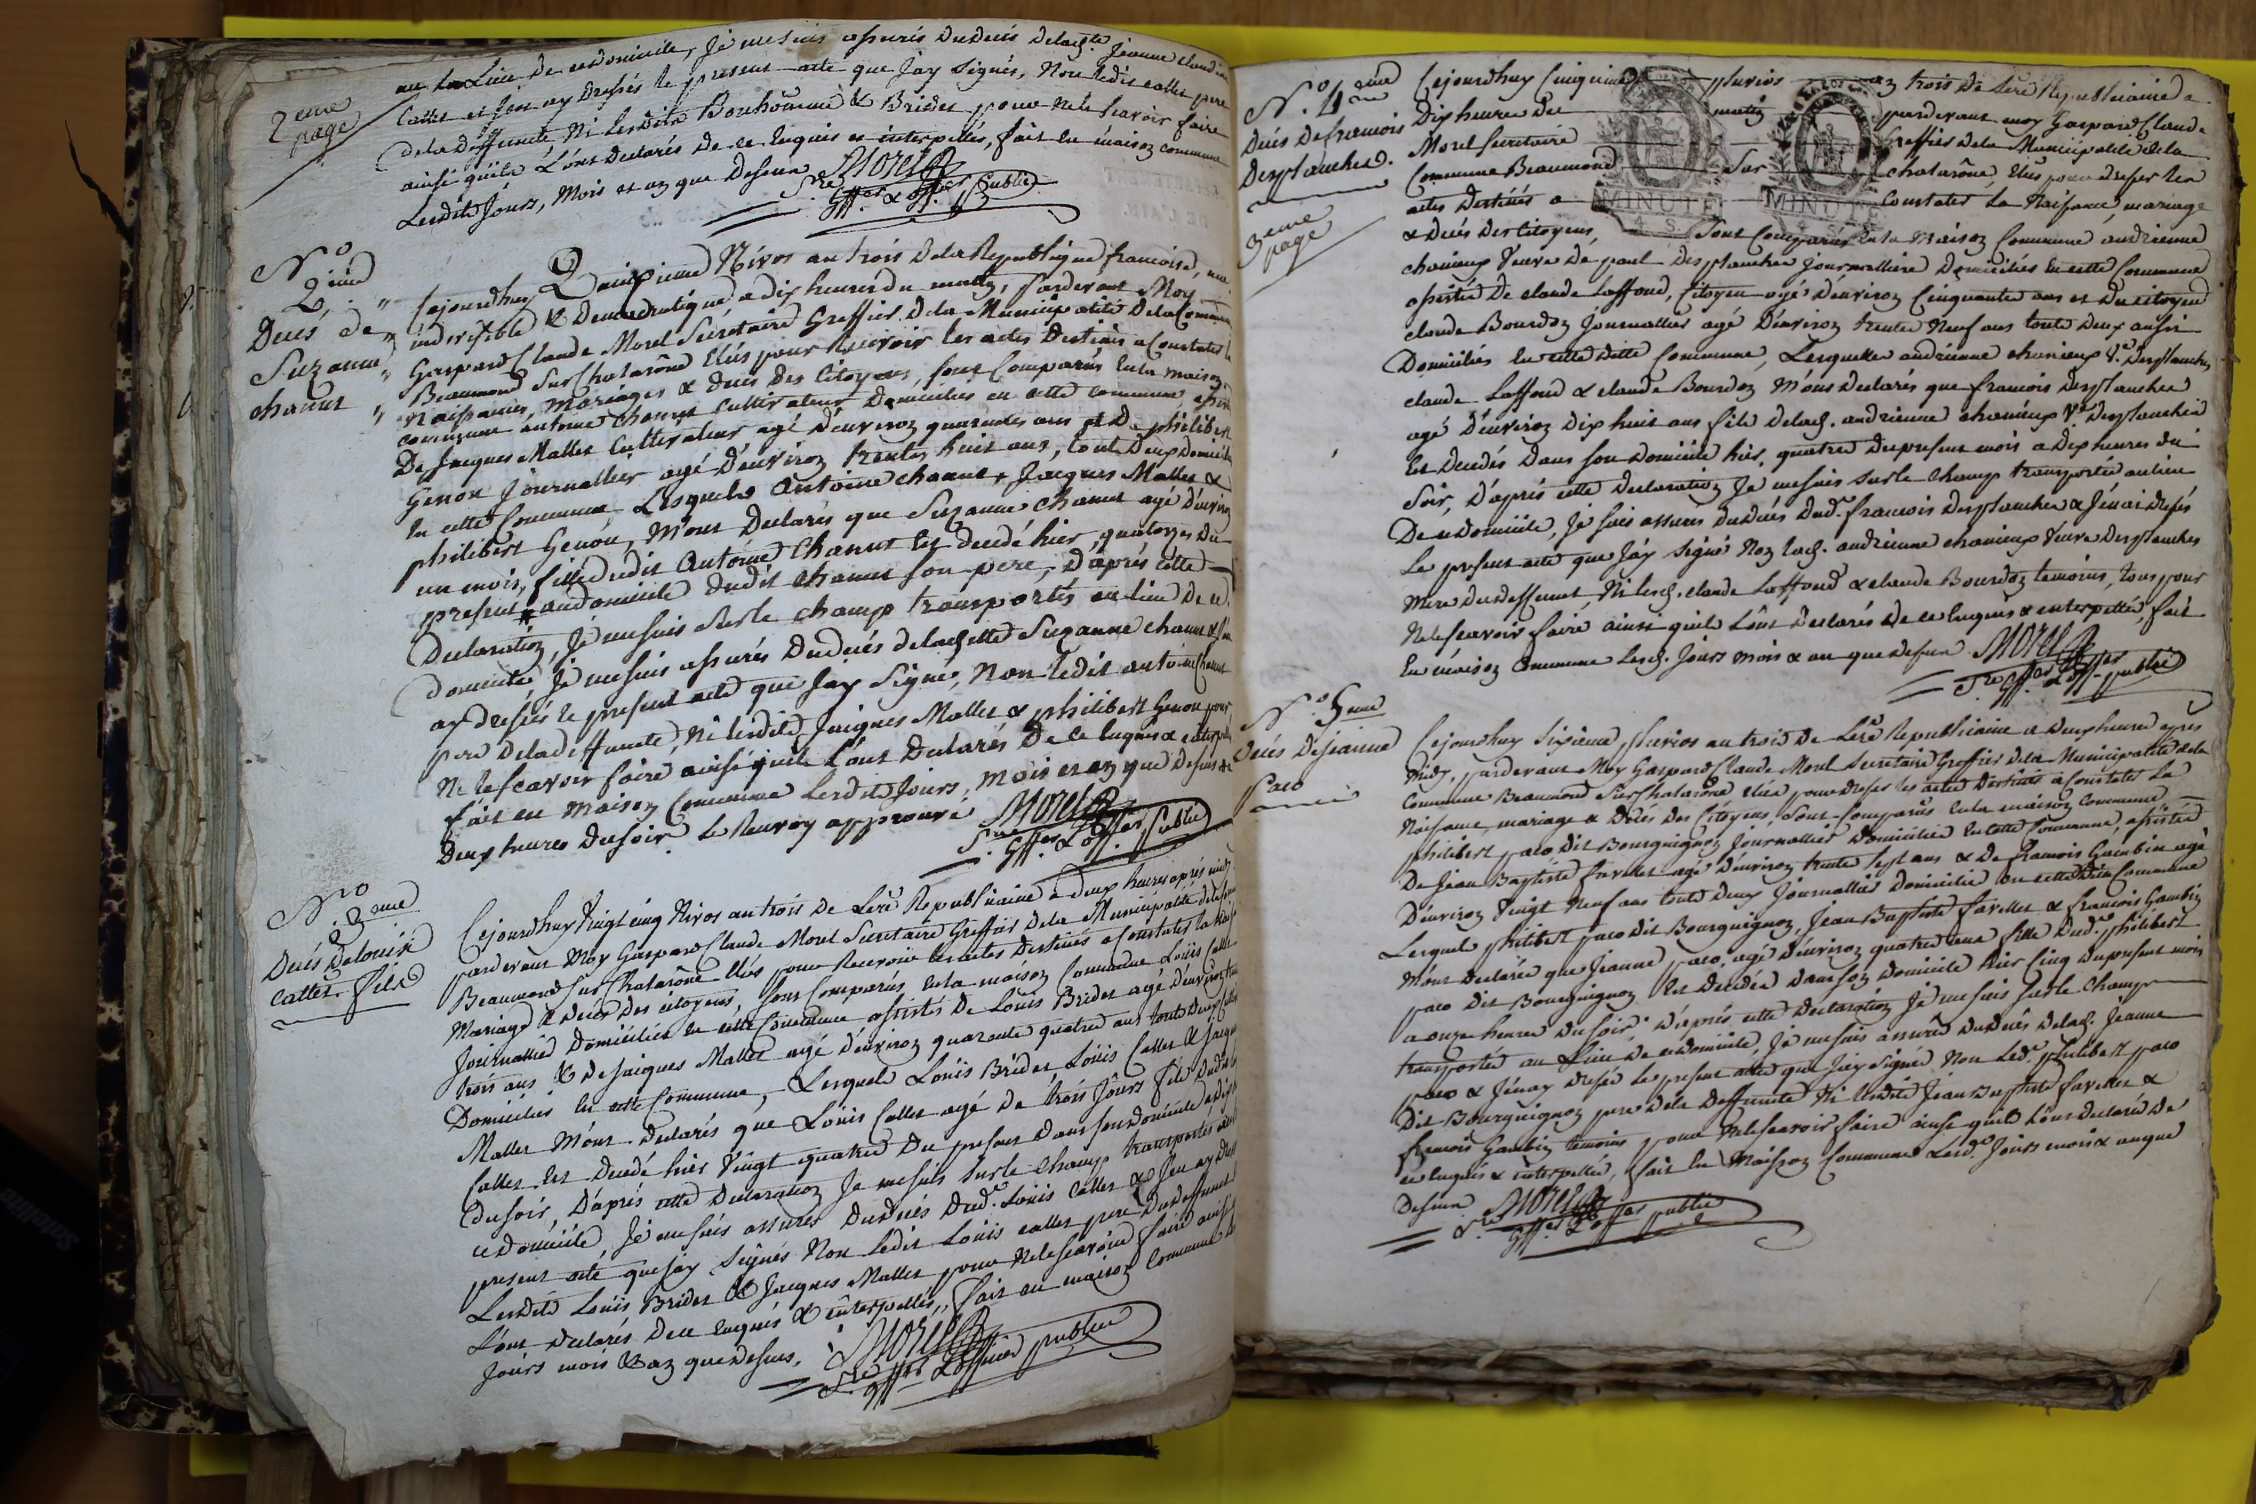 2eme
page
au Lieu de ce domicile, Je me suis assurés du decés de lad.te Jeanne Claudine
Catter et J'en ay dressés le present acte que J'ay Signés, Non ledit Catter pere
de la deffunte, Ni lesdits Bonhomme & Brider pour ne le Scavoir faire
ainsi qu'ils L'ont declarés de ce Enquis et interpellés, fait en maison commune
Lesdits Jours, Mois et an que dessus Morel
S.re Gff.er & off.er Public
N.o
2.eme
Decés de
Suzanne
chanut
Cejourdhuy Quinzieme Nivos an trois de la Republique francoise, une
indivisible & Democratique, a dix heures du matin, Pardevant Moy
Gaspard Claude Morel Secretaire Greffier de la Municipalité de la Commune
Beaumond Sur Chalarône Elûs pour Recevoir les actes Destinés a Constater la
Naissances, Mariages & decés des Citoyens, sont Comparûs En la maison
commune antoine Chanut Cultivateur Domiciliés en cette commune assisté
De Jacques Mallet Cultivateur agé D'environ quarantes ans et De philibert
Genon Journallier agé d'environ trentes huit ans, tout Deux Domiciliés
En cette Commune Lesquels Antoine chanut, Jacques Mallet &
philibert Genon, M'ont Declarés que Suzanne chanut agé D'environ
un mois, fille dudit Antoine Chanut Est decedé hier, quatorzes du
present au domicile dudit chanut son pere, D'aprés cette
Declaration, Je me suis Sur le champ transportés au lieu de ce
domicile, Je me suis assurés du decés de lad. ette Suzanne chanut & J'en
ay dressés le present acte que J'ay Signé, Non ledit antoine chanut
pere de la deffunte, Ni lesdits Jacques Mallet & philibert Genon pour
Ne le scavoir faire ainsi qu'ils L'ont Declarés De ce Enquis & interpellés
fait en maison Commune Lesdits Jours, mois et an que dessus
Deux heures du soir le Renvoy approuvé Morel
S.re Gff.er & off.er Public
N.o
3.eme
Decés de Louis
Catter fils
Cejourdhuy Vingt cinq Nivos an trois de L'ere Republicaine a deux heures aprés midy
pardevant Moy Gaspard Claude Morel Secretaire Greffier de la Municipalité
Beaumond Sur Chalarône Elûs pour Recevoir les actes Destinés a Constater la
Mariage & decés des citoyens, sont Comparûs En la maison Commune Louis Catter
Journallier Domiciliés en cette Commune assistés De Louis Brider agé D'environ
trois ans & de Jacques Mallet agé d'environ quarante quatres ans tout Deux
Domiciliés En cette Commune, Lesquels Louis Brider, Louis Catter & Jacques
Mallet M'ont Declarés que Louis Catter agé de trois Jours fils dudit
Catter Est decedé hier Vingt quatres Du present Dans son domicile
du soir, D'aprés cette Declaration Je me suis Sur le champ transportés
ce domicile, Je me suis assurés du decés dud.t Louis Catter & J'en ay
present acte que J'ay Signés Non ledit Louis Catter pere du deffunt
Lesdits Louis Brider & Jacques Mallet pour Ne le Scavoir faire ainsi
L'ont declarés de ce Enquis & interpellés, fait en maison Commune
Jours mois & an que dessus, Morel
S.re Gff.er & officier public
N.o 4.eme
Decés de francois
Desplanches.
3.eme
page
Cejourdhuy Cinquieme pluvios an trois de L'ere Republicaine a
Dix heures du matin pardevant moy Gaspard Claude
Morel Secretaire Greffier de la Municipalité de la
Commune Beaumond Sur Chalarône, Elûs pour dresser les
actes Destinés a Constater La Naissance, mariage
& decés des Citoyens, Sont Comparûs En la Maison Commune andrienne
chanieux Veuve De paul Desplanches Journalliere Domiciliés En cette Commune
assistés De claude Laffond, Citoyen agé D'environ Cinquantes ans et du citoyen
claude Bourdon Journallier agé D'environ trentes Neuf ans touts Deux aussi
Domiciliés En cette ditte Commune, Lesquelles andrienne chanieux V.e Desplanches
claude Laffond & claude Bourdon M'ont declarés que francois Desplanches
agé D'environ Dix huit ans fils de lad. andrienne chanieux V.e Desplanches
Est decedés Dans son Domicile hier, quatres du present mois a Dix heures du
Soir, D'aprés cette declaration Je me suis sur le champ transportés au lieu
De ce domicile, Je suis assurés du decés dud.t francois Desplanches & J'en ai dressés
Le present acte que J'ay Signé Non lad. andrienne chanieux Veuve Desplanches
Mere du deffunt, Ni lesd. claude Laffond & claude Bourdon temoins, tous pour
Ne le scavoir faire ainsi qu'ils L'ont Declarés De ce Enquis & interpellés, fait
En maison Commune Lesd. Jours mois & an que dessus Morel
S.re Gff.er & off.er public
N.o 5.eme
Decés de Jeanne
paco
Cejourdhuy Sixieme pluvios an trois de L'ere Republicaine a Deux heures apres
midy, pardevant Moy Gaspard Claude Morel Secretaire Greffier de la Municipalité de la
Commune Beaumond Sur Chalarône Elûs pour dresser les actes Destinés a Constater La
Naissance, mariage & decés des Citoyens, Sont Comparûs En la maison Commune
philibert paco Dit Bourguignon Journallier Domicilié En cette Commune, assistés
De Jean Baptiste favellet agé D'environ trente Sept ans & De francois Gambin agé
D'environ Vingt Neuf ans touts Deux Journallier Domicilié en cette Commune
Lesquels philibert paco Dit Bourguignon, Jean Baptiste favellet & francois Gambin
M'ont declarés que Jeanne paco, agé D'environ quatres ans fille dud.t philibert
paco Dit Bourguignon Est decedés Dans son Domicile hier Cinq du present mois
a onze heures du Soir, D'aprés cette declaration Je me suis sur le champ
transportés au Lieu De ce domicile, Je me suis assurés du decés de lad. Jeanne
paco & J'en ay dressés Le present acte que J'ay Signés Non Led.t philibert paco
Dit Bourguignon pere de la deffunte Ni lesdits Jean Baptiste favellet &
francois Gambin temoins pour Ne le scavoir faire ainsi qu'ils L'ont declarés De
ce Enquis & interpellés, fait En Maison Commune Lesd.t Jours mois & an que
Dessus Morel
S.re Gff.er & off.er public
MINUTE
4 S
MINUTE